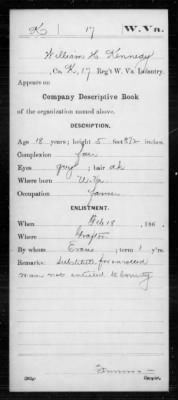 K 17 W. Va.
William H. Kennedy
Co. K, 17 Reg't W. Va. Infantry.
Appears on
Company Descriptive Book
of the organization named above.
DESCRIPTION.
Age 18 years; height 5 feet 8 1/2 inches.
Complexion fair
Eyes grey; hair dk
Where born
Occupation Farmer
ENLISTMENT.
When Feb 18, 186 .
Where Grafton
By whom Evans; term 1 y'rs.
Remarks: Substitute for enrolled
man not entitled to bounty
Copyist.